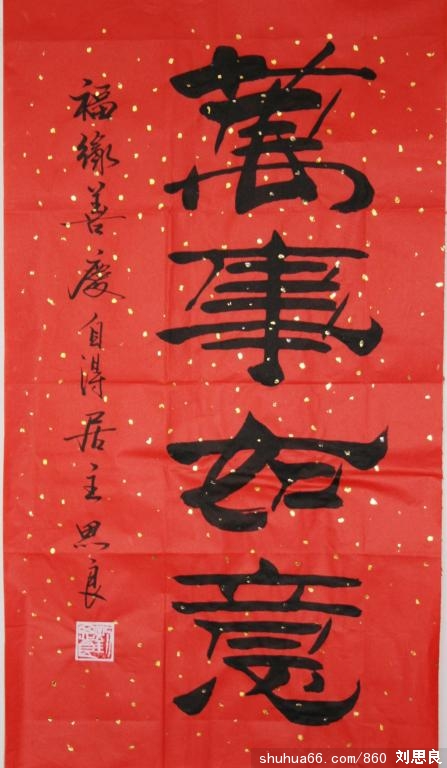 萬事如意
福緣善慶自得居主思良
shuhua66.com/860 刘思良